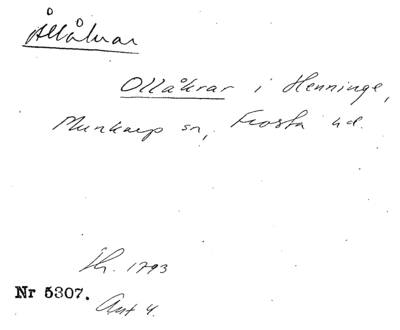 Ållåkrar
Ollåkrar i Henninge,
Munkarp sn, Frosta hd.
Sh. 1793
Nr 5307.
Ant 4.